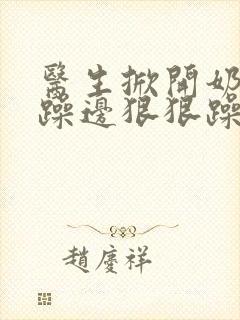 醫生掀開奶
躁邊狠狠躁
趙慶祥